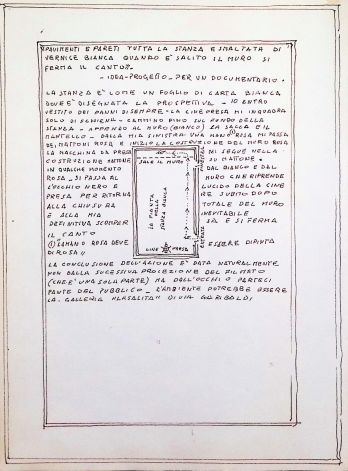 PAVIMENTI E PARETI TUTTA LA STANZA E SMALTATA DI
VERNICE BIANCA QUANDO E' SALITO IL MURO SI
FERMA IL CANTO".
-IDEA-PROGETTO-PER UN DOCUMENTARIO.
LA STANZA E' COME UN FOGLIO DI CARTA BIANCA
DOVE E' DISEGNATA LA PROSPETTIVA - IO ENTRO
VESTITO DEI PANNI DI SEMPRE - LA CINEPRESA MI INQUADRA
SOLO DI SCHIENA - CAMMINO FINO SUL FONDO DELLA
STANZA - APPENDO AL MURO (BIANCO) LA SACCA E IL
MANTELLO - DALLA MIA SINISTRA UNA MANO ROSA MI PASSA
DEI MATTONI ROSA E INIZIO LA COSTRUZIONE DEL MURO ROSA
LA MACCHINA DA PRESA MI SEGUE NELLA
COSTRUZIONE MATTONE SU MATTONE.
IN QUALCHE MOMENTO DAL BIANCO E DAL
ROSA - SI PASSA AL MURO CHE RIPRENDE
L'OCCHIO NERO E LUCIDO DELLA CINE
PRESA PER RITORNA RE SUBITO DOPO
ALLA CHIUSURA TOTALE DEL MURO
E ALLA MIA INEVITABILE
DEFINITIVA SCOMPAR SA E SI FERMA
IL CANTO
① LA MANO ROSA DEVE ESSERE DIPINTA
DI ROSA!!
SALE IL MURO
LA PIANTA
DELLA
STANZA
CINE PRESA
ENTRATA
LA CONCLUSIONE DELL'AZIONE E' DATA NATURALMENTE
NON DALLA SUCESSIVA PROIEZIONE DEL FILMATO
(CHE E' UNA SOLA PARTE) MA DALL'OCCHIO PARTECI
PANTE DEL PUBBLICO - L'AMBIENTE POTREBBE ESSERE
LA GALLERIA DI VIA GARIBALDI